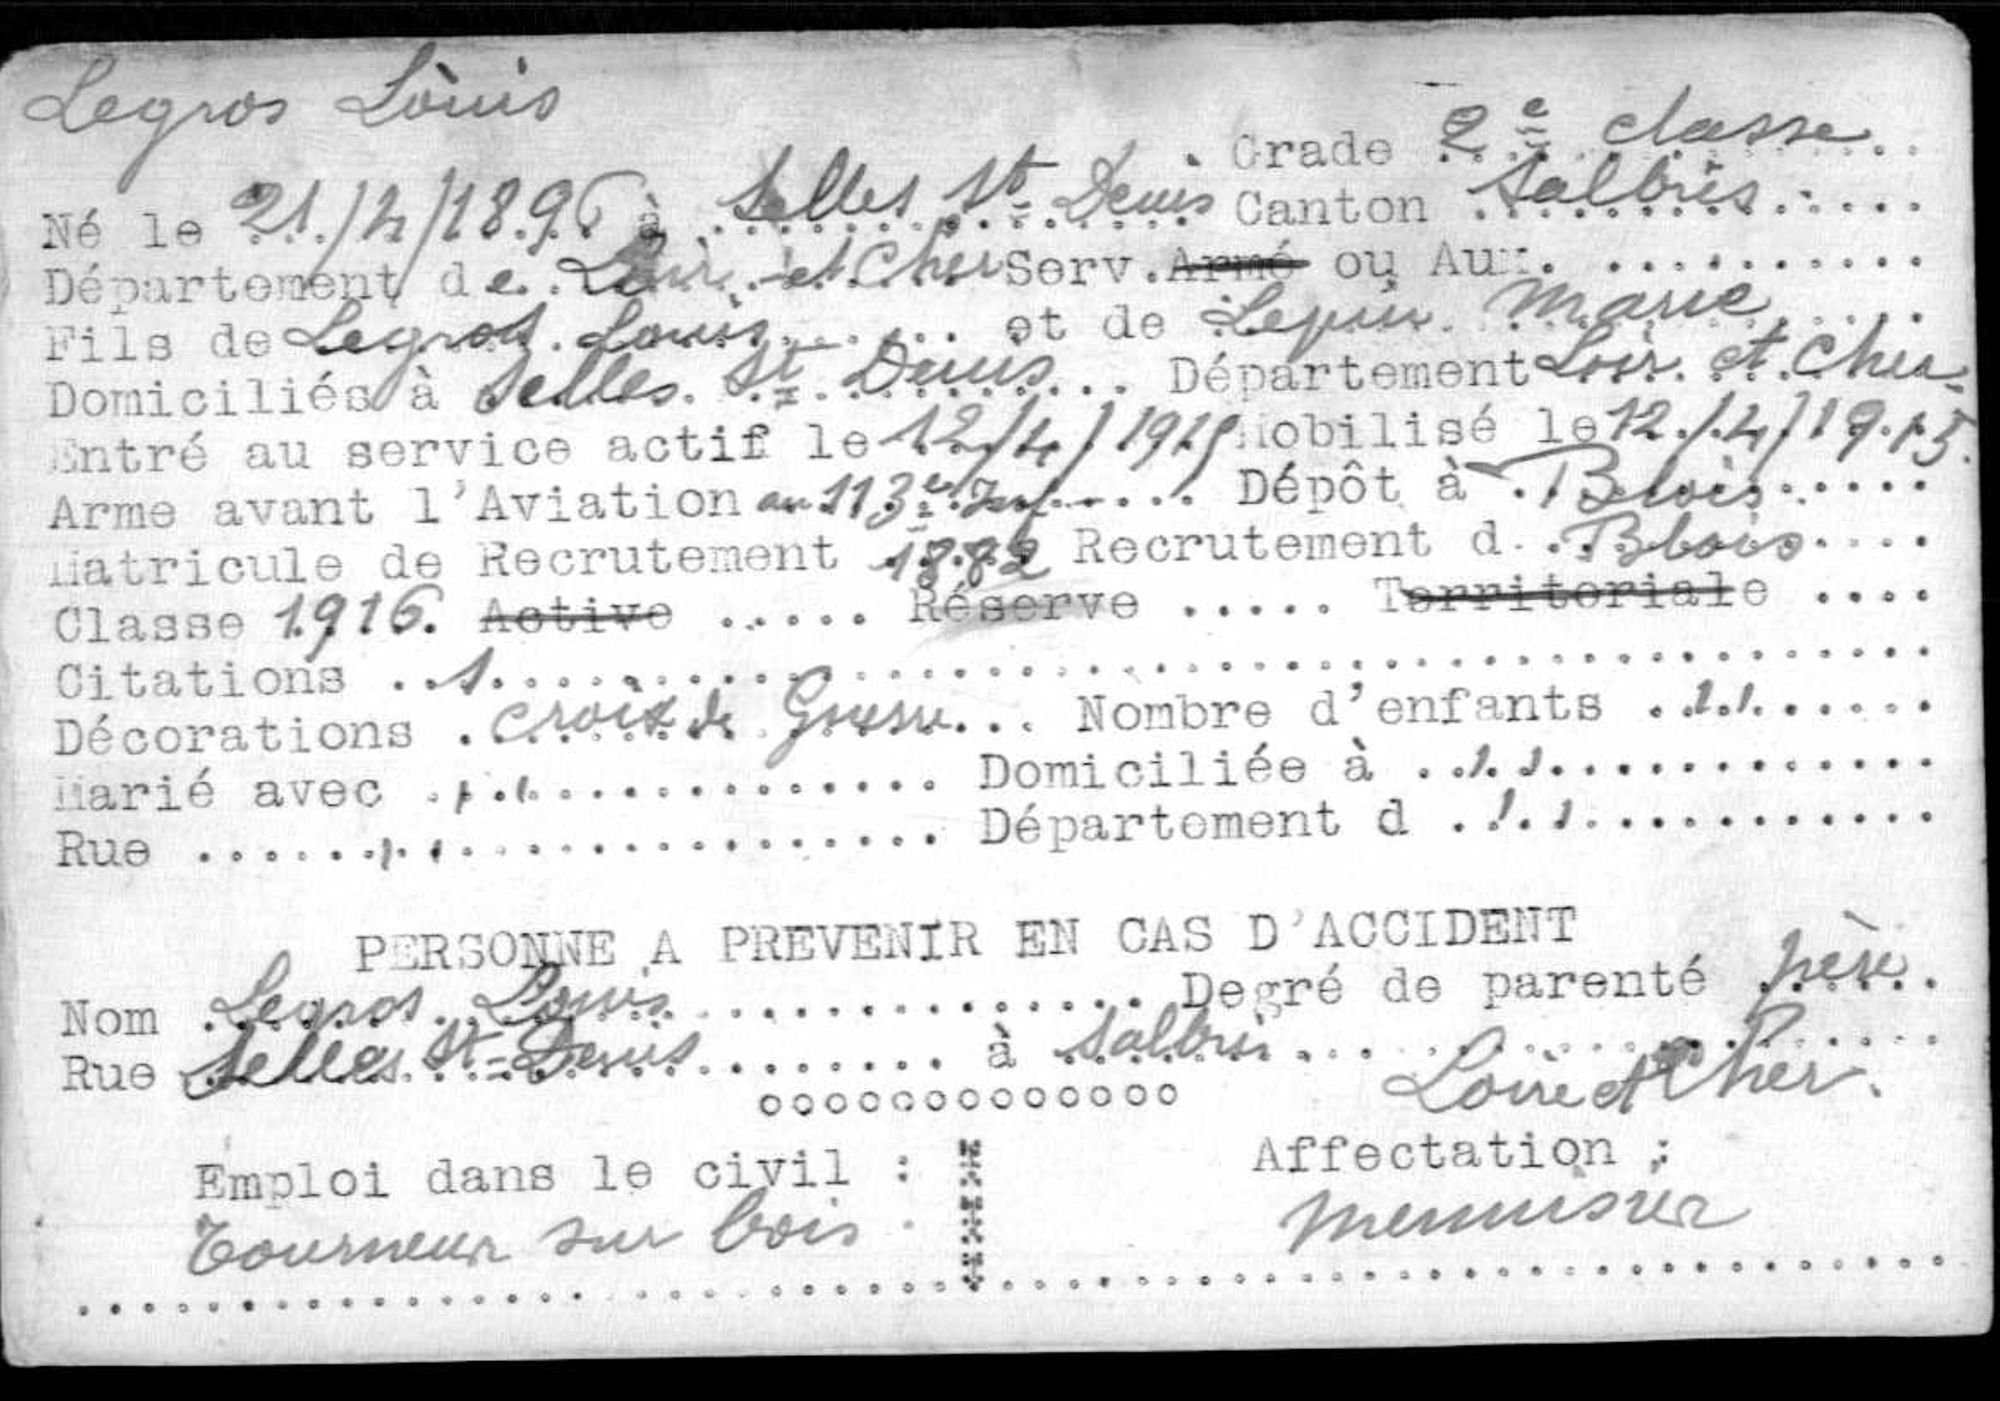 Legros Louis
Grade 2e classe
Né le 21/4/1896 à Selles St-Denis Canton Salbris
Département de Loir-et-Cher Serv. Armé ou Aux.
Fils de Legros Louis et de Lepin Marie
Domiciliés à Selles St-Denis Département Loir et Cher
Entré au service actif le 12/4/1915 Mobilisé le 12/4/1915
Arme avant l'Aviation au 113e Inf Dépôt à Blois
Matricule de Recrutement 1882 Recrutement d Blois
Classe 1916. Active ..... Réserve ..... Territoriale ....
Citations 1
Décorations Croix de Guerre Nombre d'enfants
Marié avec Domiciliée à
Rue Département d
PERSONNE A PREVENIR EN CAS D'ACCIDENT
Nom Legros Louis Degré de parenté père
Rue Selles St-Denis à Salbris
Loir et Cher.
Emploi dans le civil : Affectation :
Tourneur sur bois menuisier